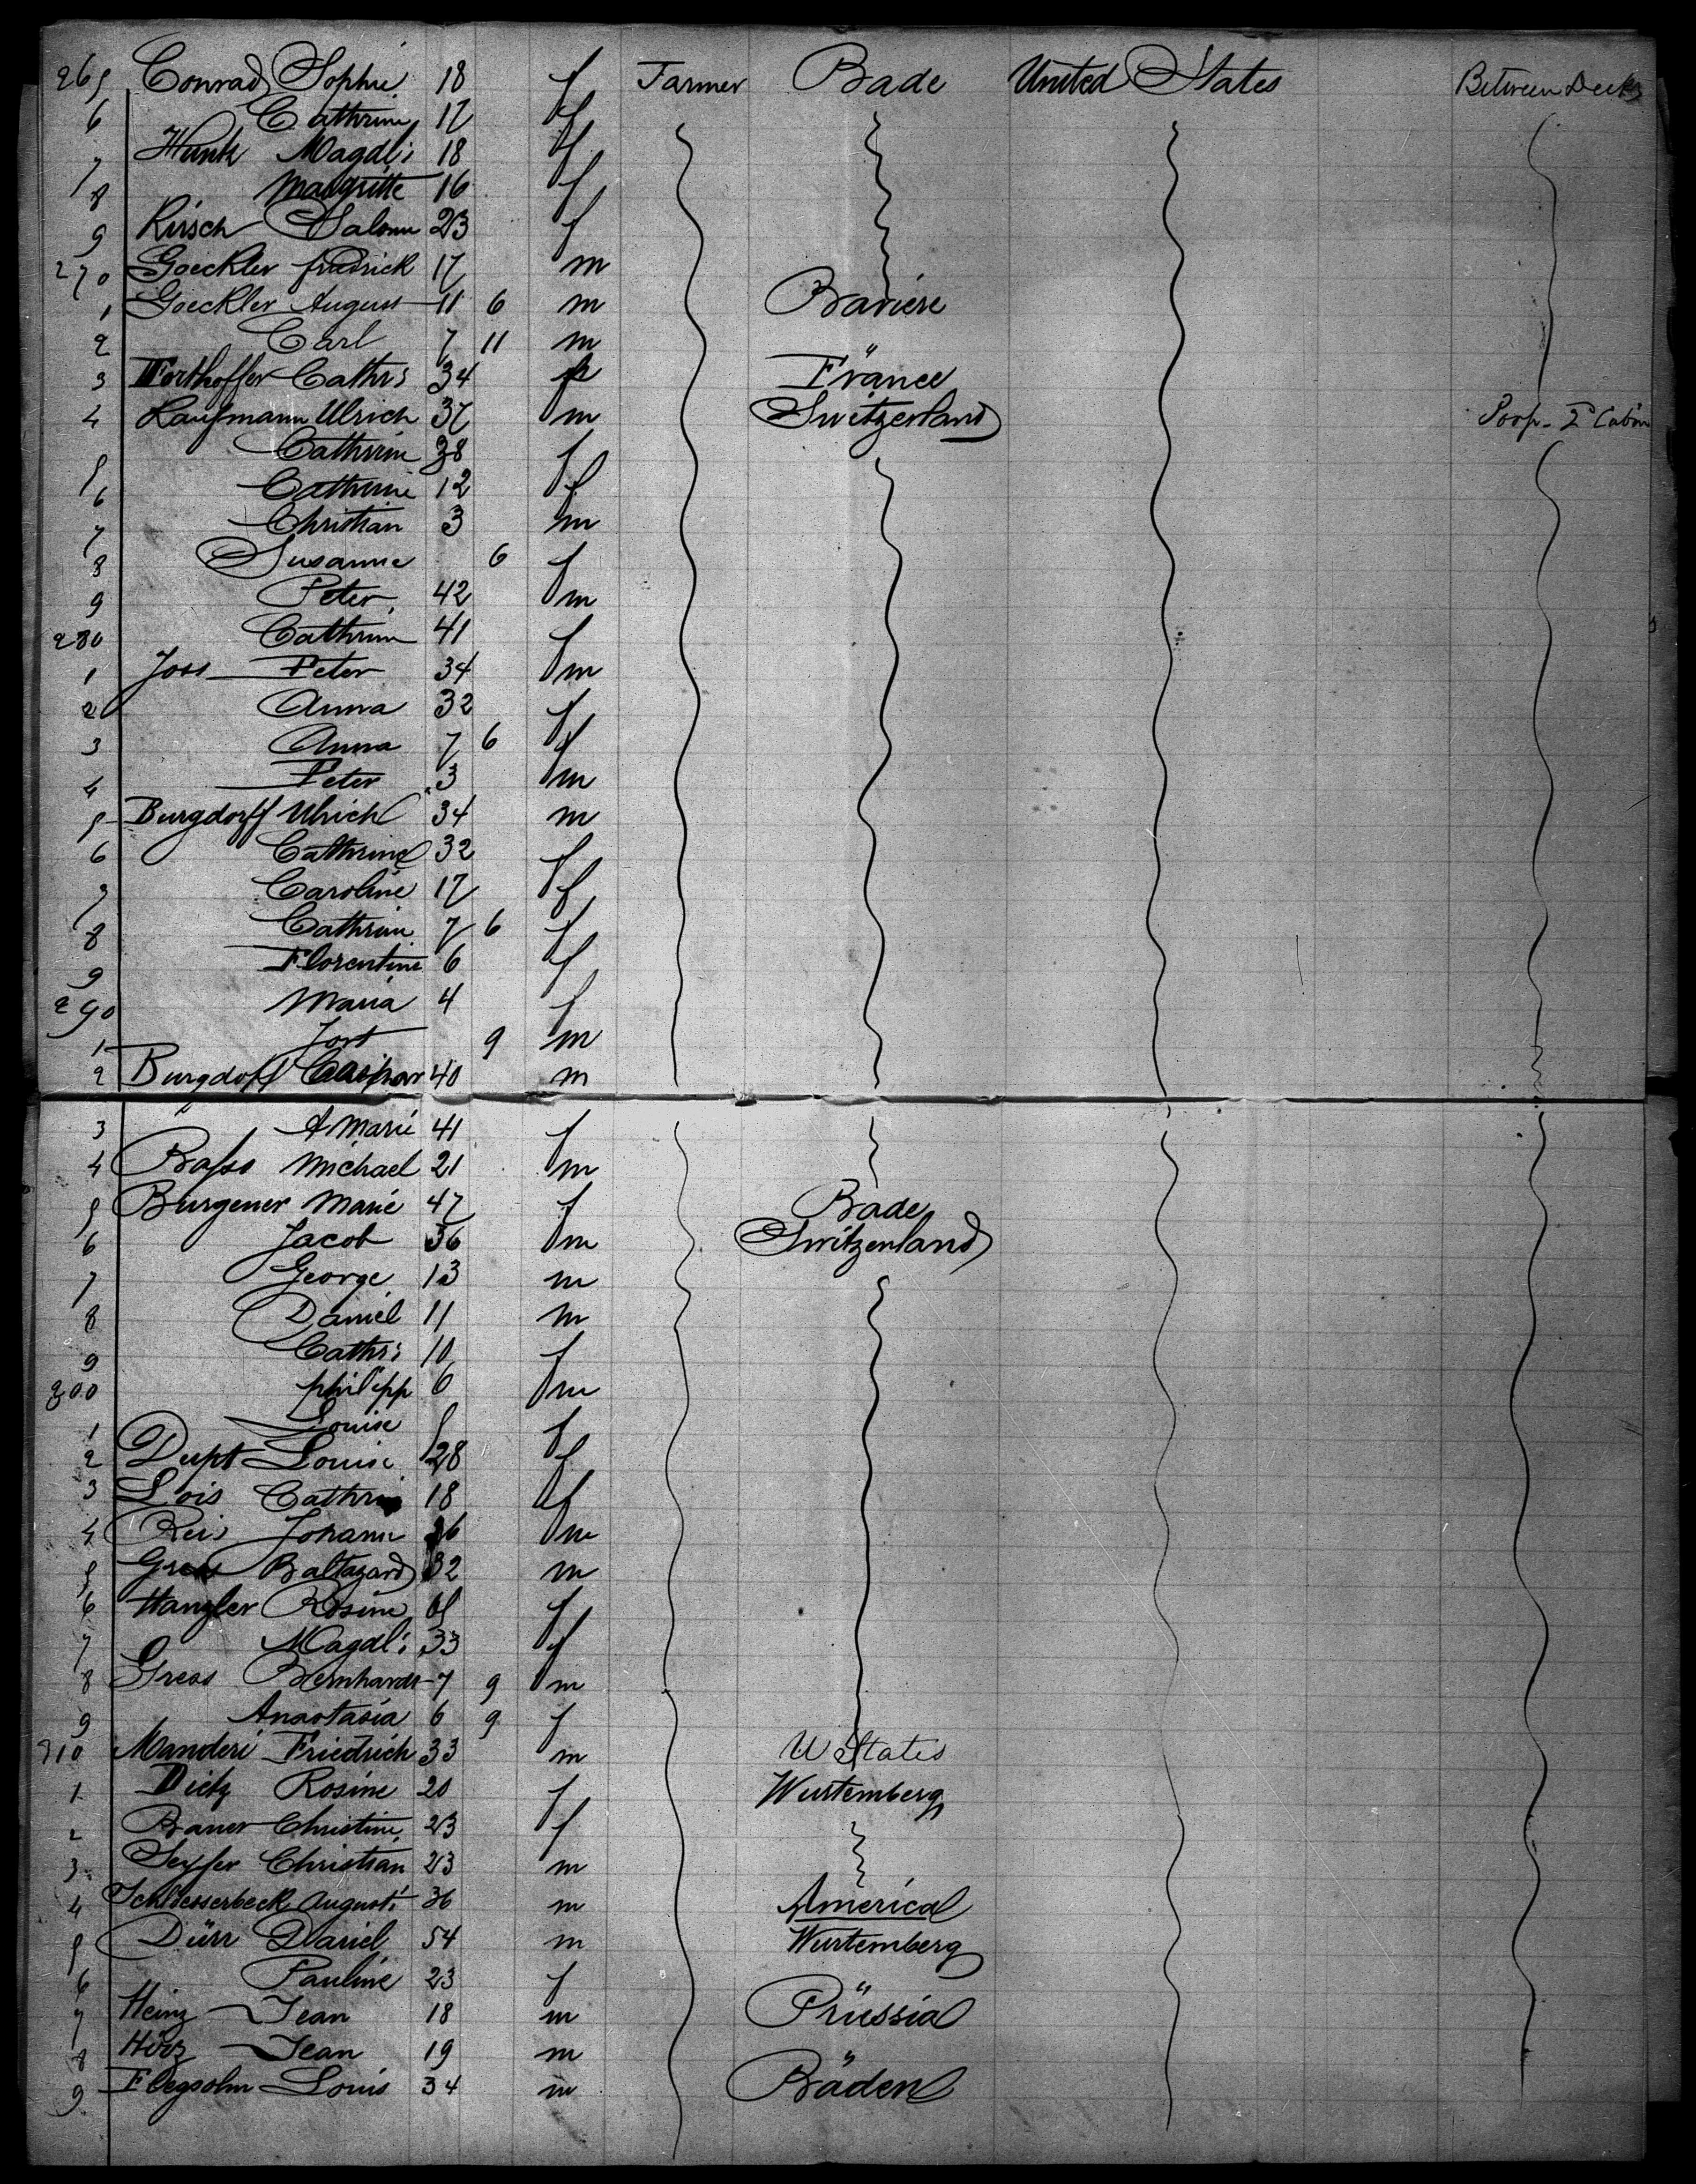 265 Conrad Sophie 18 f Farmer Bade United States Between Decks
6 Cathrine 17 f
7 Hunk Magdl: 18 f
8 Margritte 16 f
9 Kirsch Salome 23 f
270 Goeckler fredrick 17 m
1 Goeckler August 11 6 m Baviere
2 Carl 7 11 m
3 Forthoffer Cath: 34 f France
4 Kaufmann Ulrich 37 m Switzerland Poop - 2d Cabin
5 Cathrine 38 f
6 Catherine 12 f
7 Christian 3 m
8 Susanne 6 f
9 Peter 42 m
280 Cathrine 41 f
1 Joss Peter 34 m
2 Anna 32 f
3 Anna 7 6 f
4 Peter 3 m
5 Burgdorff Ulrich 34 m
6 Cathrine 32 f
7 Caroline 17 f
8 Cathrine 7 6 f
9 Florentine 6 f
290 Maria 4 f
1 Jost 9 m
2 Burgdoff Caspar 40 m
3 A Marie 41 f
4 Michael 21 m
5 Burgener Marie 47 f Bade
6 Jacob 36 m Switzenland
7 George 13 m
8 Daniel 11 m
9 Cath: 10 f
300 philipp 6 m
1 Louise 5 f
2 Dupt Louise 28 f
3 Lois Cathrin 18 f
4 Reis Johann 26 m
5 Baltazard 32 m
6 Hangler Rosine f
7 Magdl: 33 f
8 Greas Bernhardt 7 9 m
9 Anastasia 6 9 f
310 Manderi Friedrich 33 m U States
1 Dietz Rosine 20 f Wurtemberg
2 Bauer Christine 23 f
3 Seyfer Christian 23 m
4 Schloesserbeck August: 36 m America
5 Dürr Daniel 54 m Wurtemberg
6 Pauline 23 f
7 Heinz Jean 18 m Prüssia
8 Hirz Jean 19 m
9 Flegsohn Louis 34 m Baden